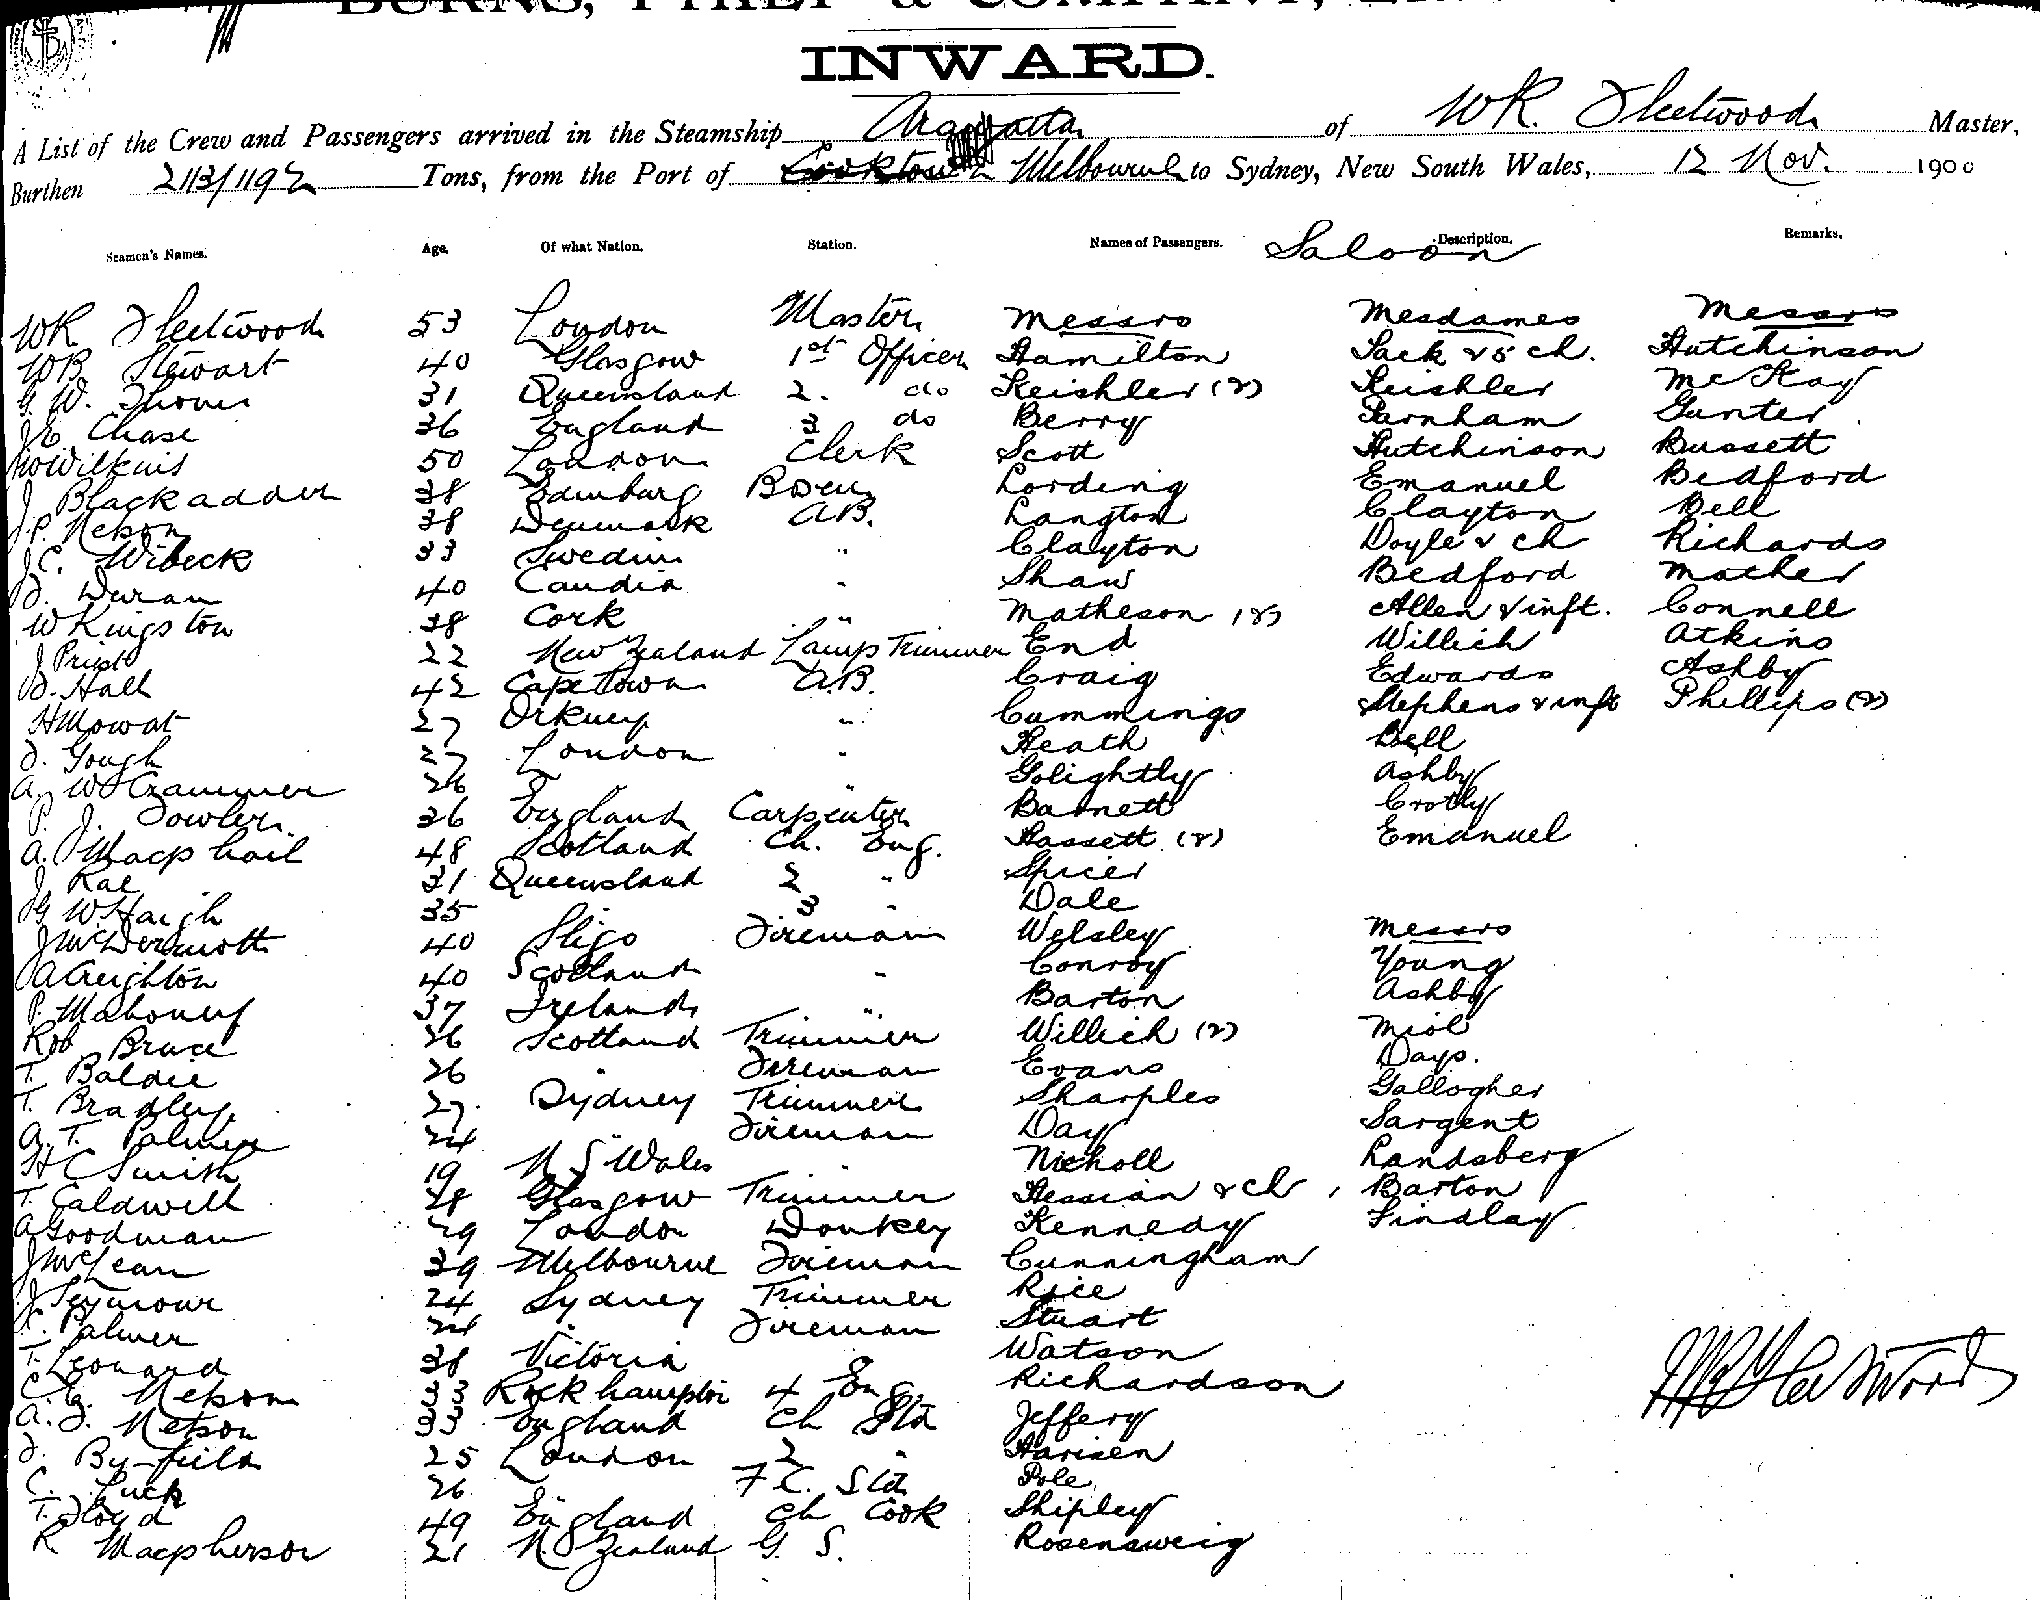 BURNS, PHILP & COMPANY,
INWARD.
A List of the Crew and Passengers arrived in the Steamship Aramatta of WR. Fleetwood Master,
Burthen 2113/1192 Tons, from the Port of Cooktown Melbourne to Sydney, New South Wales, 12 Nov. 1900
Seamen's Names. Age. Of what Nation. Station. Names of Passengers. Saloon Description. Remarks.
WR Fleetwood 53 London Master Messrs Mesdames Messrs
WB Stewart 40 Glasgow 1st Officer Hamilton Jack & 5 ch. Hutchinson
G. W. Thomas 31 Queensland 2. do Keishler (2) Keishler McKay
J E Chase 36 England 3 do Berry Farnham Gunter
Wilkins 50 London Clerk Scott Hutchinson Bussett
J. Blackadder 38 Edinburg Bosun Lording Emanuel Bedford
J. P. Nelson 38 Denmark A.B. Langton Clayton Bell
J. C. Wibeck 33 Sweden " Clayton Doyle & ch Richards
D. Duran 40 Candia " Shaw Bedford Mather
W Kingston 38 Cork " Matheson (2) Allen & inft. Connell
J Priest 22 New Zealand Lamp Trimmer End Willich Atkins
D. Hall 42 Cape Town A.B. Craig Edwards Ashby
H Mowat 27 Orkney " Cummings Stephens & inft Phillips (2)
D. Gough 27 London " Heath Bell
A. W Crammer 26 " Golightly Ashby
P. J. Fowler 36 England Carpenter Barnett Crotty
A. Macphail 48 Scotland Ch. Eng. Hassett (2) Emanuel
J. Rae 31 Queensland 2 " Spicer
G W Haigh 35 3 " Dale
J McDermott 40 Sligo Fireman Welsley Messrs
A Creighton 40 Scotland " Conroy Young
P. Mahoney 37 Ireland " Barton Ashby
Rob Bruce 26 Scotland Trimmer Willich (2) Miol
T. Baldie 26 " Fireman Evans Days.
T. Bradley 27. Sydney Trimmer Sharples Gallogher
A. T. Palmer 24 " Fireman Day Sargent
H C Smith 19 N S Wales " Nicholl Landsberg
T. Caldwell 28 Glasgow Trimmer Hessian & ch, Barton
A Goodman 29 London Donkey Kennedy Findlay
J McLean 39 Melbourne Fireman Cunningham
J. Seymour 24 Sydney Trimmer Rice
Palmer 24 " Fireman Stuart
T. Leonard 38 Victoria Watson
C. G. Nelson 33 Rockhampton 4 Eng Richardson
A. J. Nelson 33 England Ch Std Jeffery
F. Byfield 25 London 2 " Harisen
C. Luck 26 F C. Std Pole
T. Floyd 49 England Ch Cook Shipley
R Macpherson 21 N. Zealand G. S. Rosensweig
WR Fleetwood